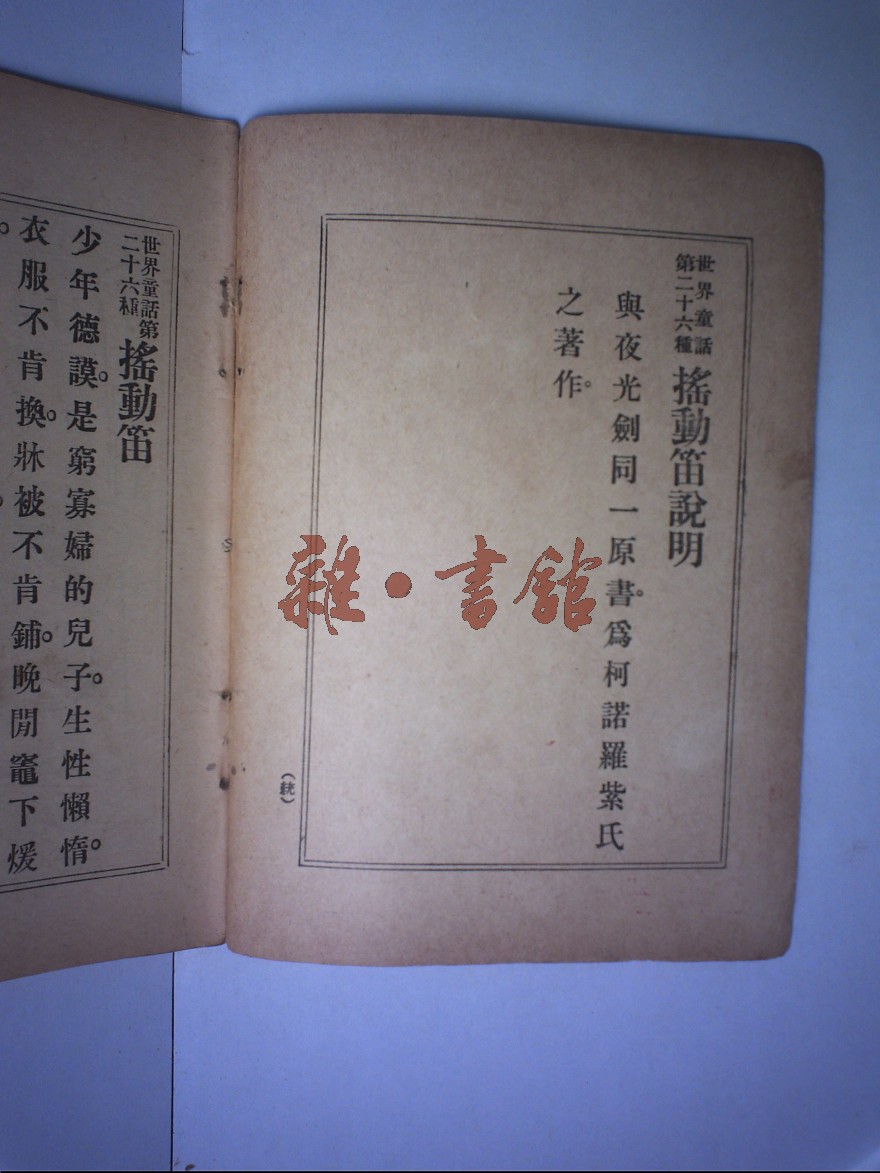 世界童話
第二十六種
搖動笛說明
與夜光劍同一原書。爲柯諾羅紫氏
之著作。
世界童話第
二十六種
搖動笛
少年德謨。是窮寡婦的兒子。生性懶惰。
衣服不肯換。牀被不肯鋪。晚閒竈下煖
雜·書館